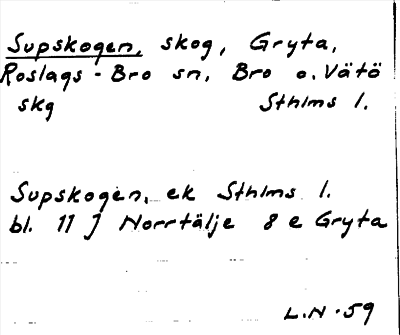 Supskogen, skog, Gryta,
Roslags-Bro sn, Bro o. Vätö
skg Sthlms l.
Supskogen, ek Sthlms l.
bl. 11 J Norrtälje 8 e Gryta
L.N.59